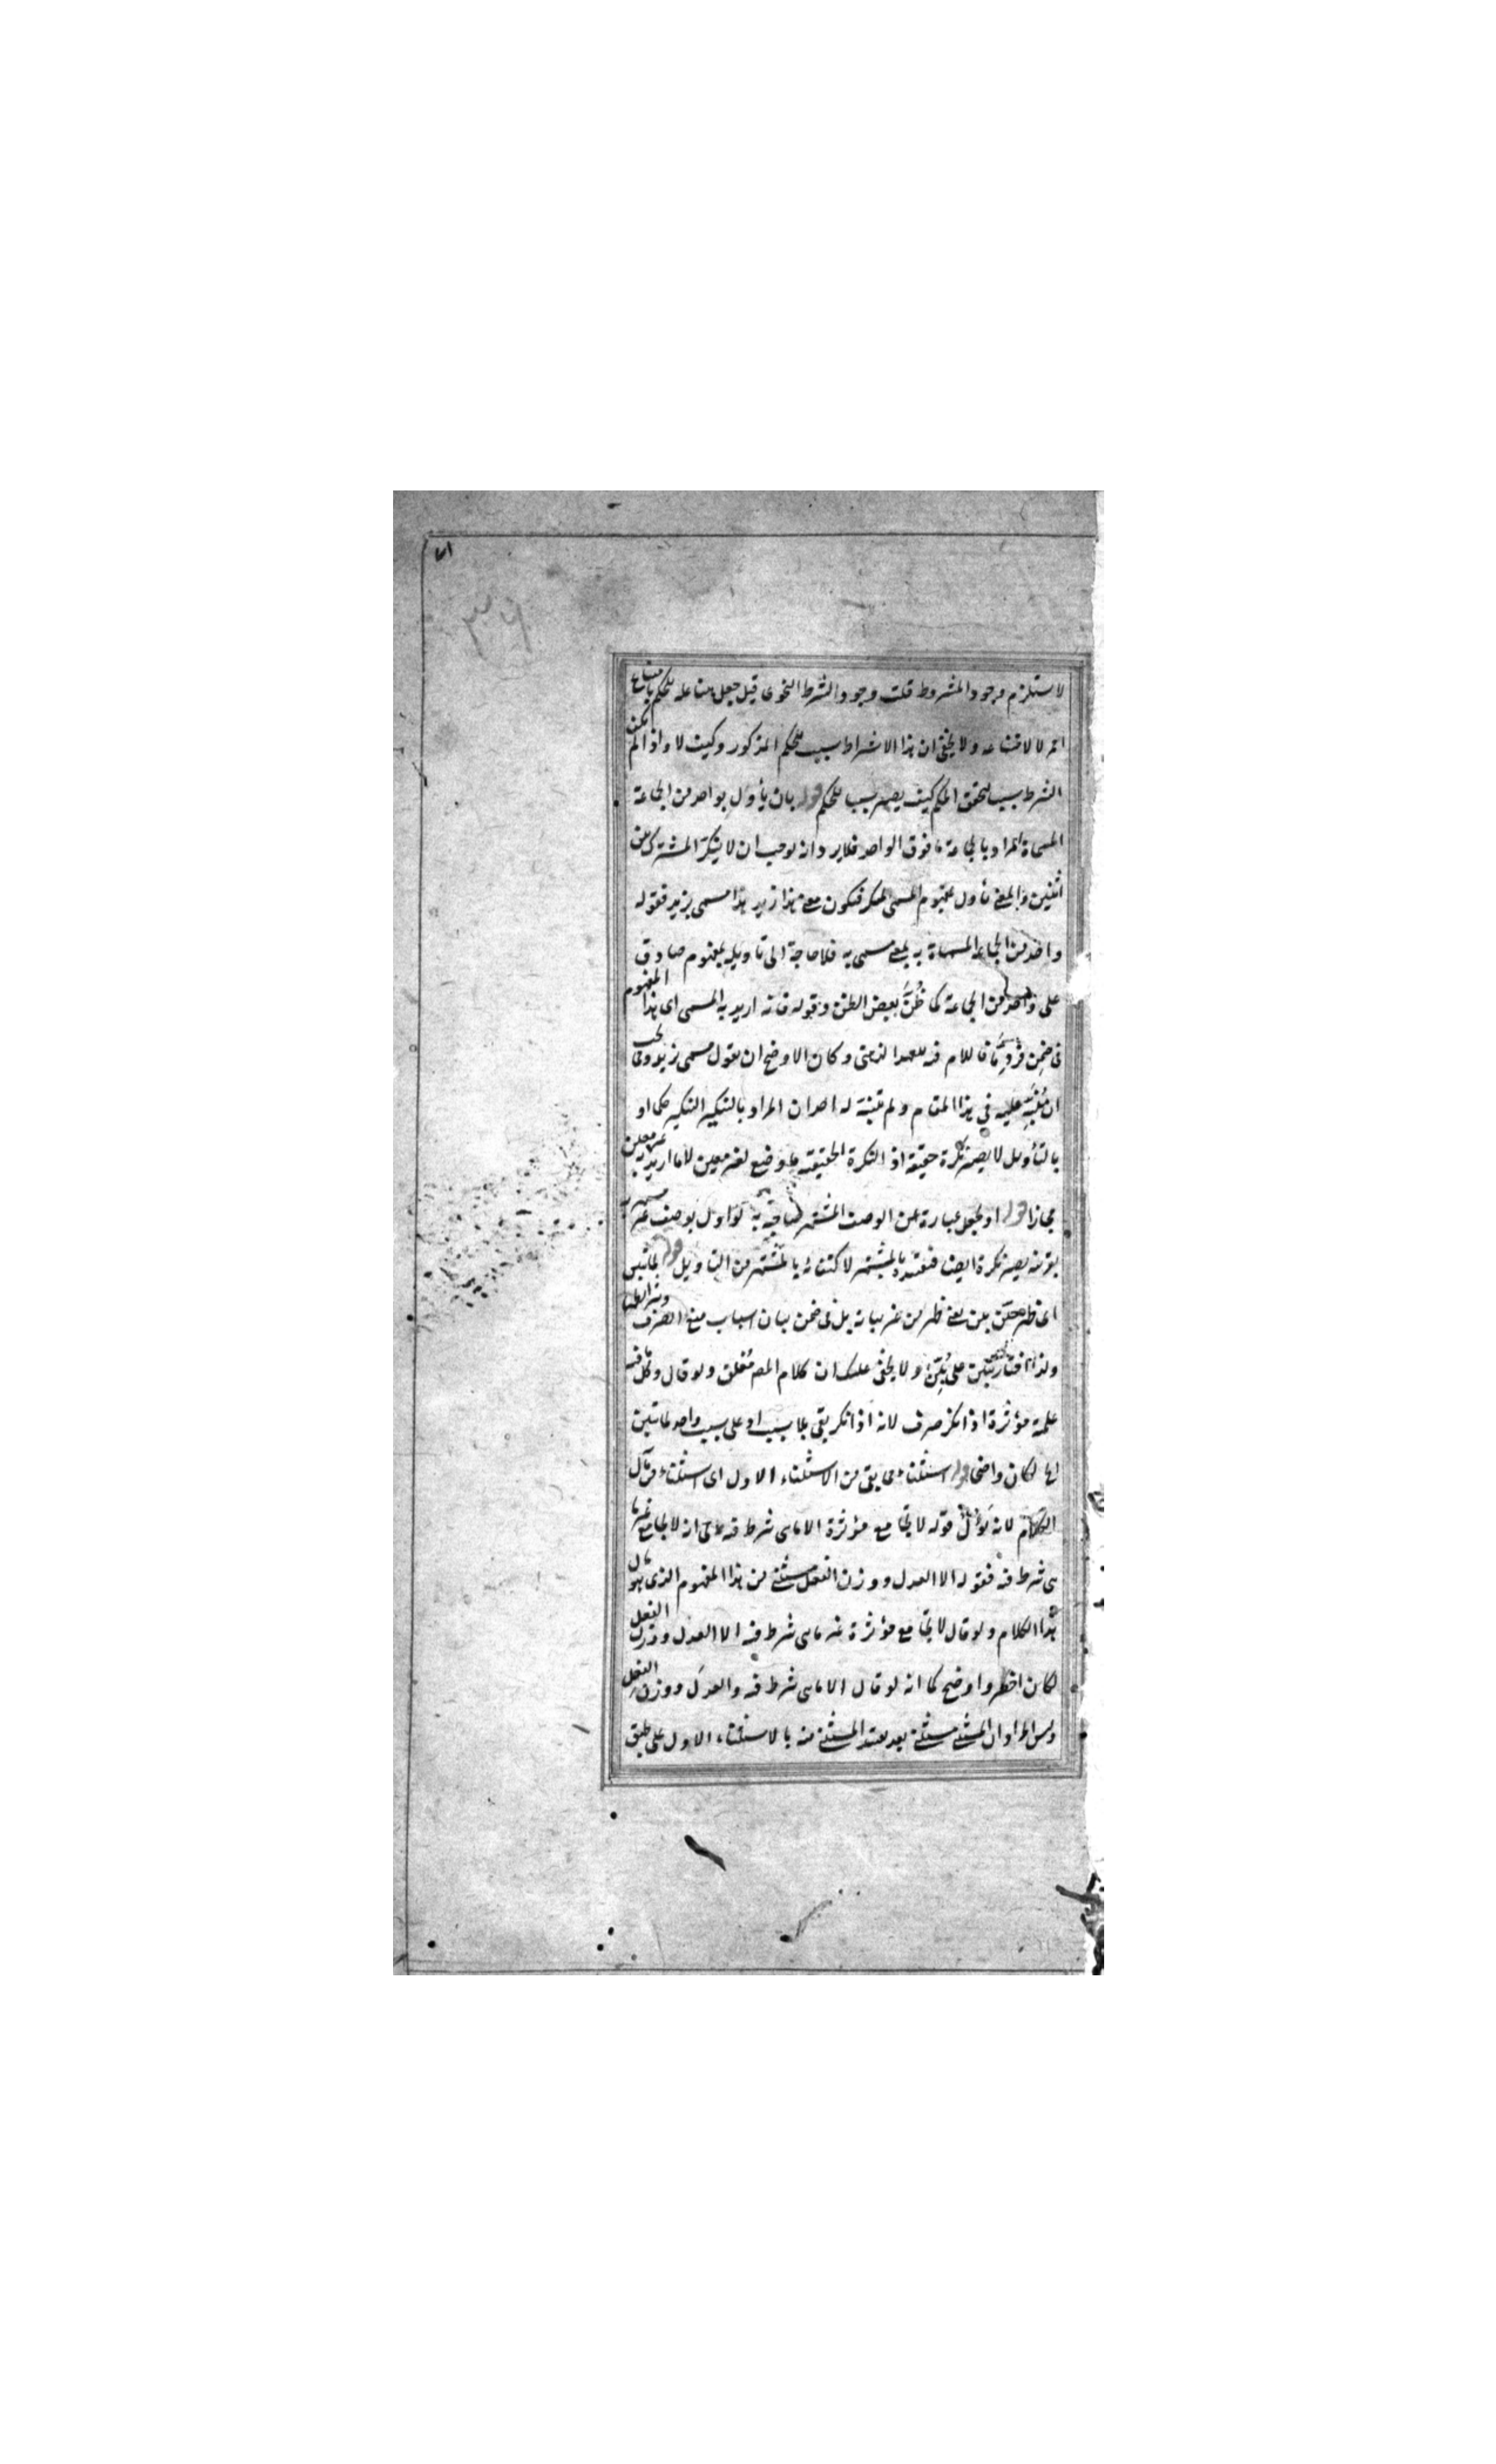 لا ستلزم وجود المشروط قلت وجود الشرط النحوى قيل جعل متناعله للحكم بامتناع
امر لا لامتناعه ولا يخفى ان هذا الاشراط سبب للحكم المذكور وكيف لا واذا لم يكن
الشرط سبب لتحقق الحكم كيف يصير سببا للحكم قوله بان يأول بواحد من الجماعة
المسماة المراد بالجماعة ما فوق الواحد فلا يرد انه يوجب ان لا ينكر المشترك بين
اثنين والمعنى تأول بمفهوم المسمى المنكر فيكون معنى هذا زيد هذا مسمى بزيد فقوله
واحد من الجماعة المسماة به بمعنى مسمى به فلا حاجة الى تاويله بمفهوم صادق
على واحد من الجماعة كما ظُنَّ بعض الظن وقوله فانه اريد به المسمى اى هذا المفهوم
فى ضمن فردٍ ما فاللام فيه للعهد الذهنى وكان الاوضح ان يقول مسمى بزيد ومما يجب
ان يُنَبَّه عليه فى هذا المقام ولم يتنبه له احد ان المراد بالتنكير التنكير حكما اذ
بالتأويل لا يصير نكرة حقيقة اذ النكرة الحقيقية ما وضع لغير معين لا ما اريد به غير معين
مجازا قوله او يجعل عبارة عن الوصف المشتهر صاحبه به لو اول بوصف غير مشتهر به
بقرينة يصير نكرة ايضا فتقييده بالمشتهر لاكتفائه بالمشتهر من التاويل قوله لما تبين
اى ظهر حين بين يعنى ظهر من غير بيانه بل فى ضمن بيان اسباب منع الصرف وشرائطها
ولذا اختار تبين على بُيِّن ولا يخفى عليك ان كلام المص مُغلق ولو قال وكل ما فيه
علمية مؤثرة اذا نكر صرف لانه اذا نكر بقى بلا سبب او على سبب واحد لما تبين
لكان واضحا قوله استثناء مما بقى من الاستثناء الاول اى استثناء من مآل
الكلام لانه مآل قوله لا تجامع مؤثرة الا ما هى شرط فيه الى انه لا تجامع غير ما
هى شرط فيه فقوله الا العدل ووزن الفعل مستثنى من هذا المفهوم الذى هو مآل
هذا الكلام ولو قال لا تجامع مؤثرة غير ما هى شرط فيه الا العدل ووزن الفعل
لكان اخصر واوضح كما انه لو قال الا ما هى شرط فيه والعدل ووزن الفعل
وليس المراد ان المستثنى مستثنى بعد تقييد المستثنى منه بالاستثناء الاول على طبق
٣٦